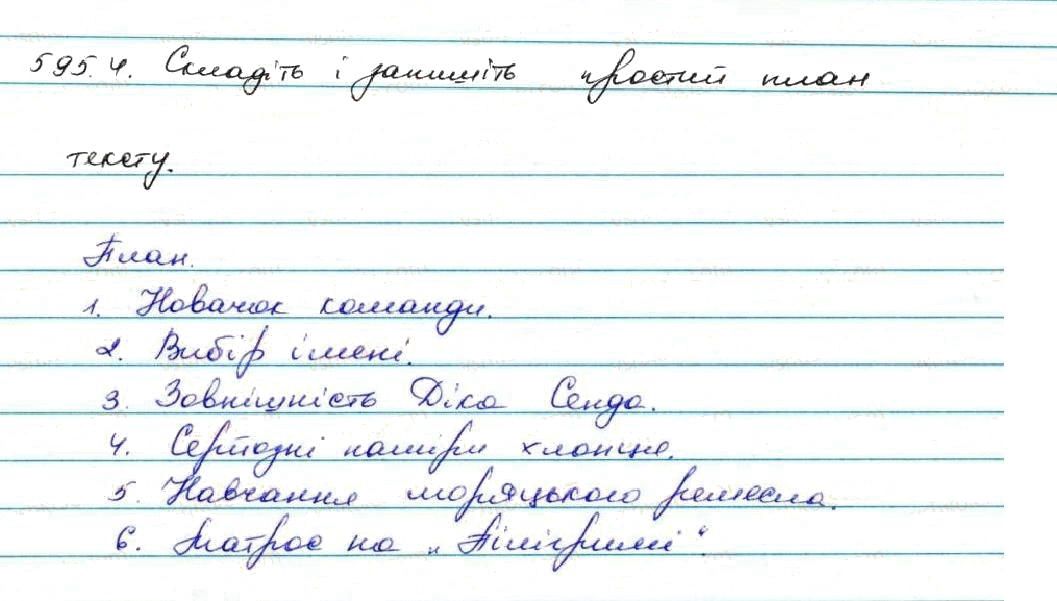 595.4. Складіть і запишіть простий план
тексту.
План.
1. Новачок команди.
2. Вибір імені.
3. Зовнішність Діка Сенда.
4. Серйозні наміри хлопця.
5. Навчання моряцького ремесла.
6. Матрос на „Пілігримі“.